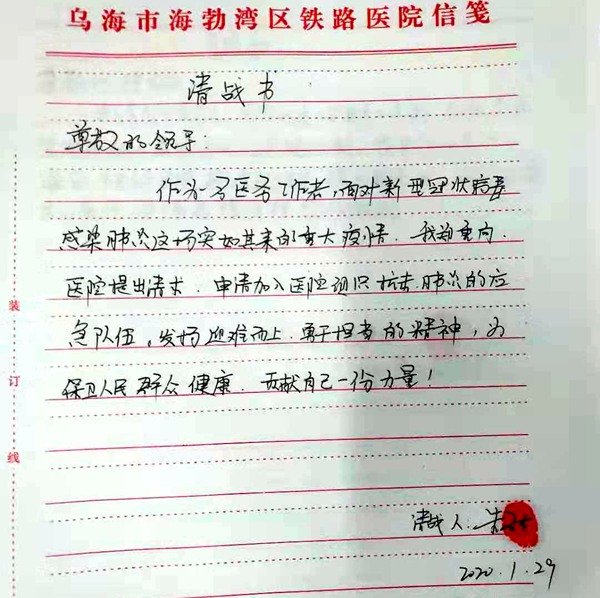 乌海市海勃湾区铁路医院信笺
请战书
尊敬的领导：
作为一名医务工作者，面对新型冠状病毒
感染肺炎这场突如其来的重大疫情，我郑重向
医院提出请求，申请加入医院组织抗击肺炎的应
急队伍，发扬迎难而上，勇于担当的精神，为
保卫人民群众健康，贡献自己一份力量！
请战人：
2020.1.29
装
订
线